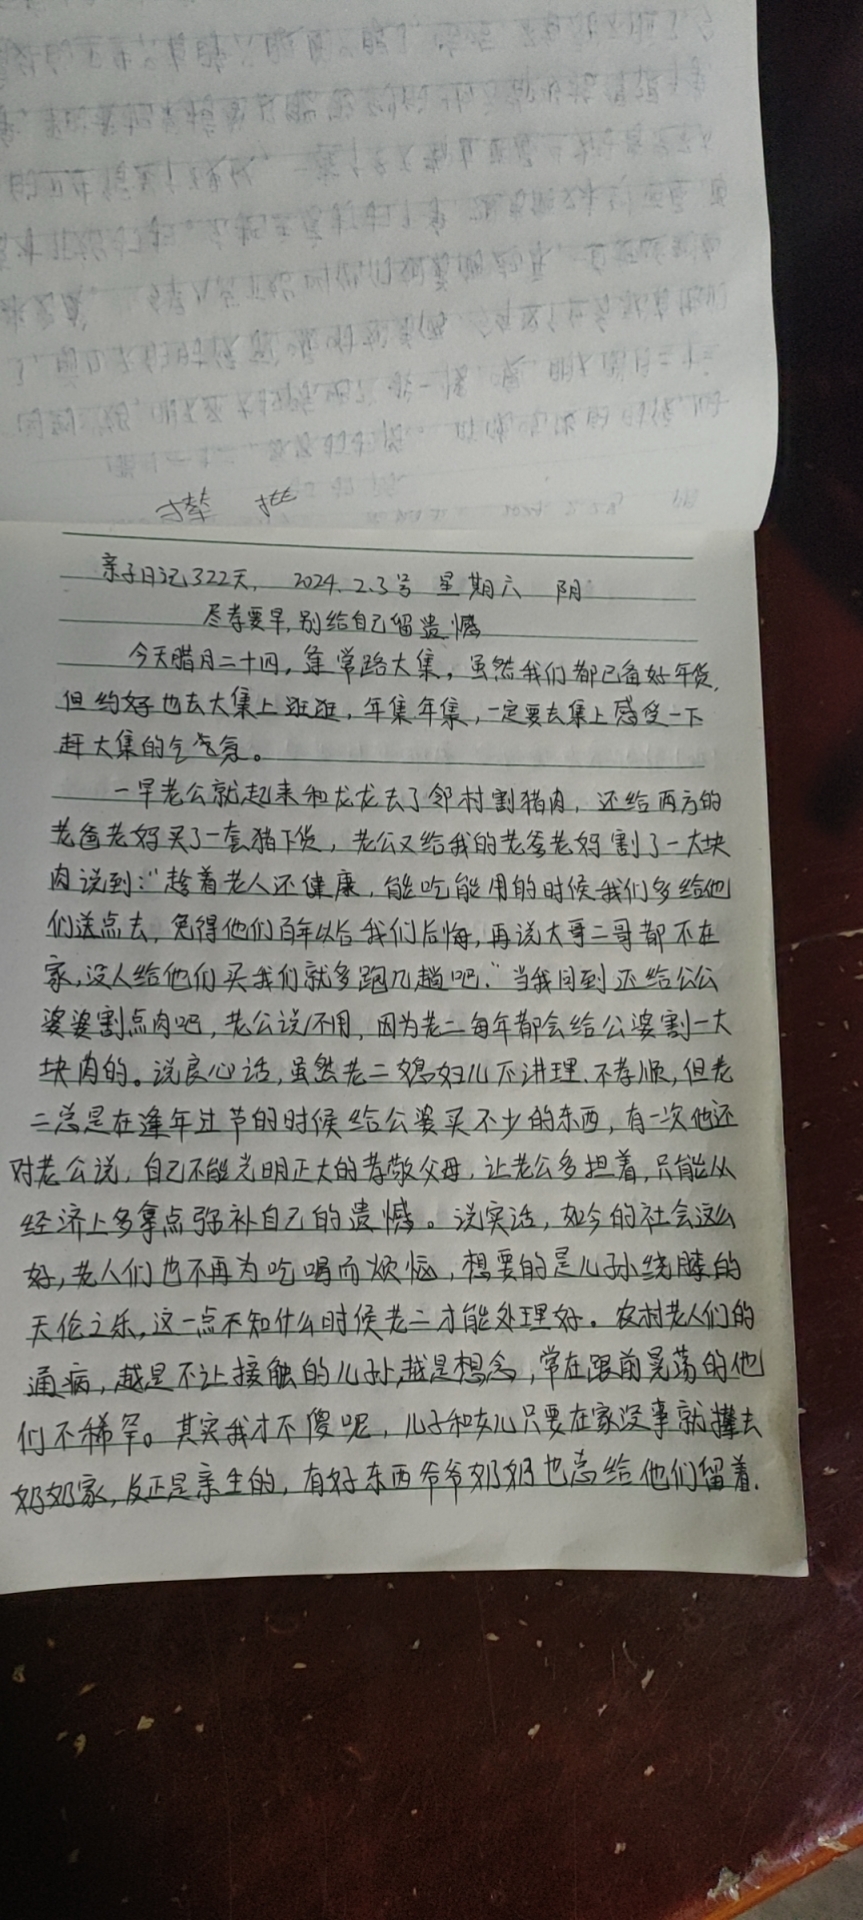 亲子日记322天, 2024.2.3号 星期六 阴
尽孝要早,别给自己留遗憾
今天腊月二十四,逢常路大集,虽然我们都已备好年货,
但约好也去大集上逛逛,年集年集,一定要去集上感受一下
赶大集的气氛。
一早老公就起来和龙龙去了邻村割猪肉,还给两方的
老爸老妈买了一套猪下货,老公又给我的老爸老妈割了一大块
肉说到:“趁着老人还健康,能吃能用的时候我们多给他
们送点去,免得他们百年以后我们后悔,再说大哥二哥都不在
家,没人给他们买我们就多跑几趟吧.”当我问到还给公公
婆婆割点肉吧,老公说不用,因为老二每年都会给公婆割一大
块肉的。说良心话,虽然老二媳妇儿不讲理、不孝顺,但老
二总是在逢年过节的时候给公婆买不少的东西,有一次他还
对老公说,自己不能光明正大的孝敬父母,让老公多担着,只能从
经济上多拿点弥补自己的遗憾。说实话,如今的社会这么
好,老人们也不再为吃喝而烦恼,想要的是儿孙绕膝的
天伦之乐,这一点不知什么时候老二才能处理好。农村老人们的
通病,越是不让接触的儿孙,越是想念,常在跟前晃荡的他
们不稀罕。其实我才不傻呢,儿子和女儿只要在家没事就撵去
奶奶家,反正是亲生的,有好东西爷爷奶奶也总给他们留着.